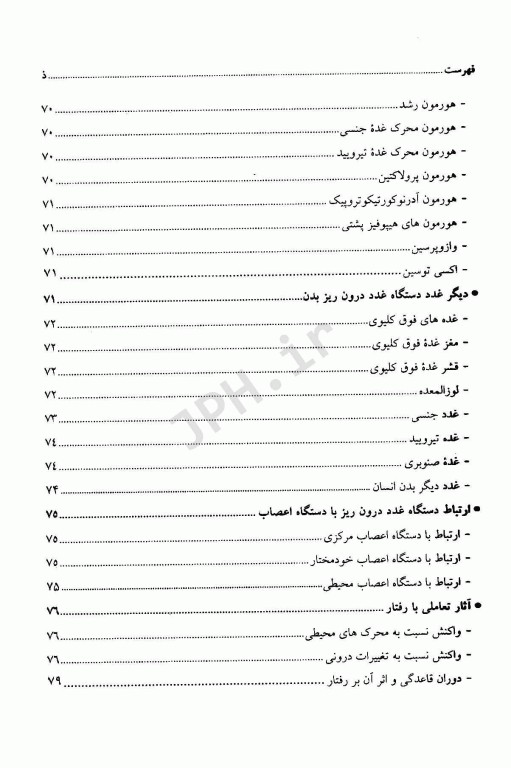 فهرست ... ذ
- هورمون رشد ... ۷۰
- هورمون محرک غدۀ جنسی ... ۷۰
- هورمون محرک غدۀ تیرویید ... ۷۰
- هورمون پرولاکتین ... ۷۰
- هورمون آدرنوکورتیکوتروپیک ... ۷۱
- هورمون های هیپوفیز پشتی ... ۷۱
- وازوپرسین ... ۷۱
- اکسی توسین ... ۷۱
• دیگر غدد دستگاه غدد درون ریز بدن ... ۷۱
- غده های فوق کلیوی ... ۷۲
- مغز غدۀ فوق کلیوی ... ۷۲
- قشر غدۀ فوق کلیوی ... ۷۲
- لوزالمعده ... ۷۲
- غدد جنسی ... ۷۳
- غده تیرویید ... ۷٤
- غدۀ صنوبری ... ۷٤
- غدد دیگر بدن انسان ... ۷۴
• ارتباط دستگاه غدد درون ریز با دستگاه اعصاب ... ۷۵
- ارتباط با دستگاه اعصاب مرکزی ... ۷۵
- ارتباط با دستگاه اعصاب خودمختار ... ۷۵
- ارتباط با دستگاه اعصاب محیطی ... ۷۵
• آثار تعاملی با رفتار ... ۷٦
- واکنش نسبت به محرک های محیطی ... ۷٦
- واکنش نسبت به تغییرات درونی ... ۷٦
- دوران قاعدگی و اثر آن بر رفتار ... ۷۹
JPH.ir